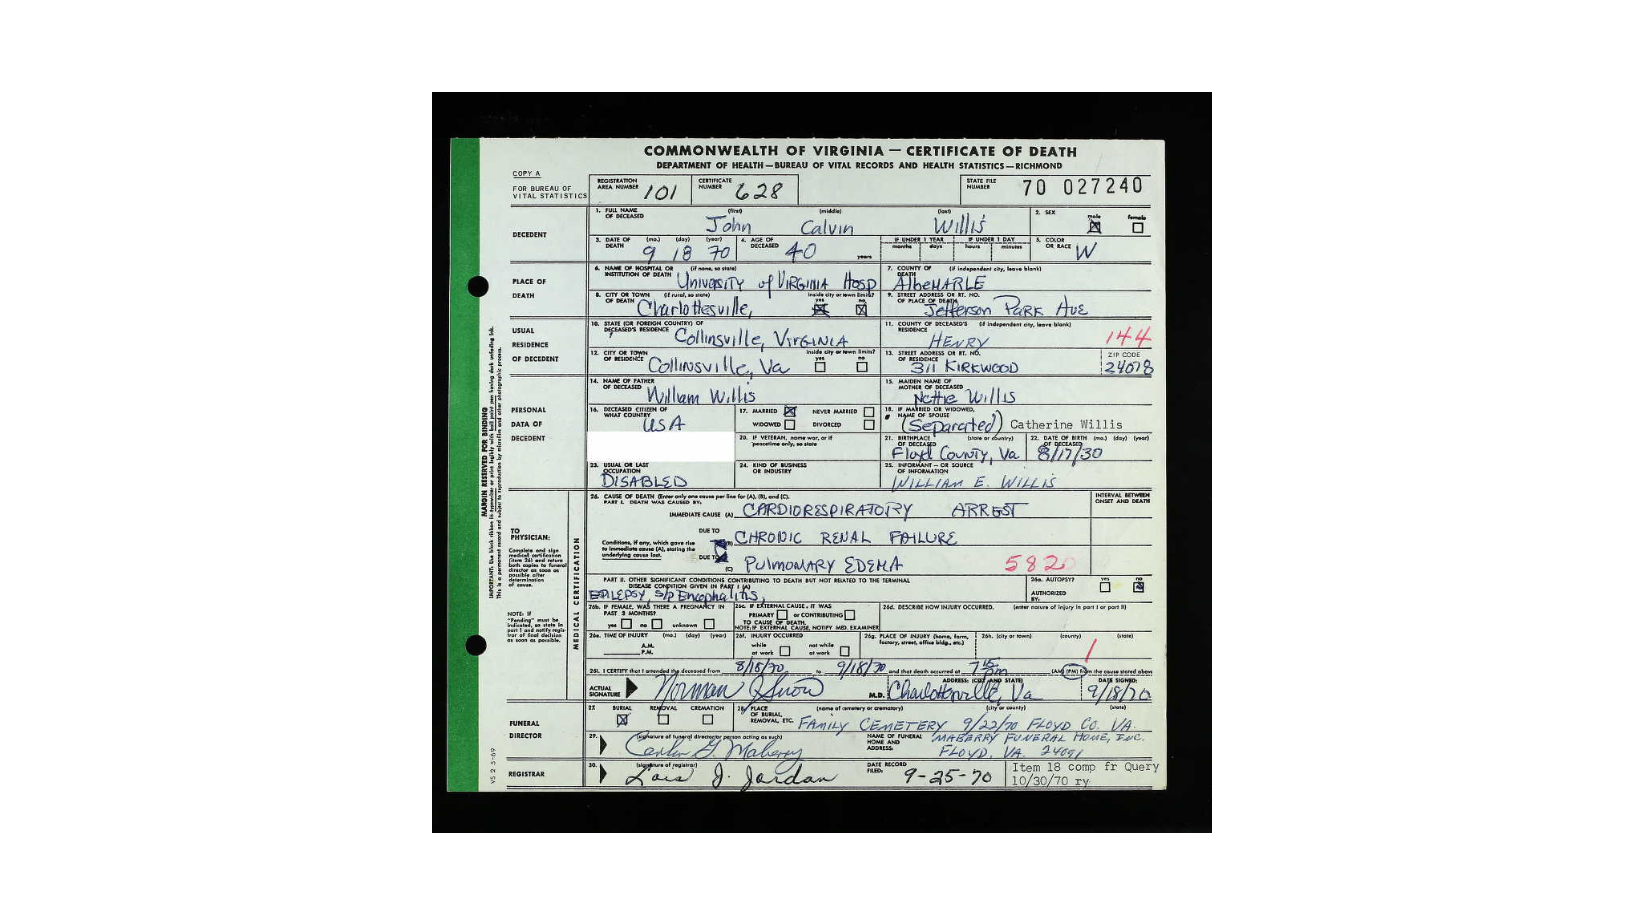 COMMONWEALTH OF VIRGINIA — CERTIFICATE OF DEATH
DEPARTMENT OF HEALTH—BUREAU OF VITAL RECORDS AND HEALTH STATISTICS—RICHMOND
COPY A
FOR BUREAU OF VITAL STATISTICS
REGISTRATION AREA NUMBER 101
CERTIFICATE NUMBER 628
STATE FILE NUMBER 70 027240
DECEDENT
1. FULL NAME OF DECEASED (first) (middle) (last)
John Calvin Willis
2. SEX male female
3. DATE OF DEATH (mo.) (day) (year) 9 18 70
4. AGE OF DECEASED 40 years
IF UNDER 1 YEAR months days
IF UNDER 1 DAY hours minutes
5. COLOR OR RACE W
PLACE OF DEATH
6. NAME OF HOSPITAL OR INSTITUTION OF DEATH (if none, so state) University of Virginia Hosp
7. COUNTY OF DEATH (if independent city, leave blank) AlbeMARLE
8. CITY OR TOWN OF DEATH (if rural, so state) Charlottesville, inside city or town limits? yes no
9. STREET ADDRESS OR RT. NO. OF PLACE OF DEATH Jefferson Park Ave
USUAL RESIDENCE OF DECEDENT
10. STATE (OR FOREIGN COUNTRY) OF DECEASED'S RESIDENCE Collinsville, Virginia
11. COUNTY OF DECEASED'S RESIDENCE (if independent city, leave blank) HENRY 144
12. CITY OR TOWN OF RESIDENCE Collinsville, Va inside city or town limits? yes no
13. STREET ADDRESS OR RT. NO. OF RESIDENCE 311 KIRKWOOD
ZIP CODE 24078
PERSONAL DATA OF DECEDENT
14. NAME OF FATHER OF DECEASED William Willis
15. MAIDEN NAME OF MOTHER OF DECEASED Nettie Willis
16. DECEASED CITIZEN OF WHAT COUNTRY USA
17. MARRIED NEVER MARRIED WIDOWED DIVORCED
18. IF MARRIED OR WIDOWED, NAME OF SPOUSE (Separated) Catherine Willis
20. IF VETERAN, name war, or if peacetime only, so state
21. BIRTHPLACE OF DECEASED (state or country) Floyd County, Va
22. DATE OF BIRTH OF DECEASED (mo.) (day) (year) 8/17/30
23. USUAL OR LAST OCCUPATION DISABLED
24. KIND OF BUSINESS OR INDUSTRY
25. INFORMANT—OR SOURCE OF INFORMATION WILLIAM E. WILLIS
MEDICAL CERTIFICATION
TO PHYSICIAN:
Complete and sign medical certification (item 26) and return both copies to funeral director as soon as possible after determination of cause.
NOTE: If "Pending" must be indicated, so state in part I and notify registrar of final decision as soon as possible.
26. CAUSE OF DEATH (Enter only one cause per line for (A), (B), and (C).
PART I. DEATH WAS CAUSED BY:
INTERVAL BETWEEN ONSET AND DEATH
IMMEDIATE CAUSE (A) CARDIORESPIRATORY ARREST
Conditions, if any, which gave rise to immediate cause (A), stating the underlying cause last.
DUE TO (B) CHRONIC RENAL FAILURE
DUE TO (C) PULMONARY EDEMA 582
PART II. OTHER SIGNIFICANT CONDITIONS CONTRIBUTING TO DEATH BUT NOT RELATED TO THE TERMINAL DISEASE CONDITION GIVEN IN PART I (A)
EPILEPSY, S/P Encephalitis,
26a. AUTOPSY? yes no
AUTHORIZED BY:
26b. IF FEMALE, WAS THERE A PREGNANCY IN PAST 3 MONTHS? yes no unknown
26c. IF EXTERNAL CAUSE, IT WAS PRIMARY or CONTRIBUTING TO CAUSE OF DEATH.
NOTE: IF EXTERNAL CAUSE, NOTIFY MED. EXAMINER
26d. DESCRIBE HOW INJURY OCCURRED. (enter nature of injury in part I or part II)
26e. TIME OF INJURY (mo.) (day) (year) A.M. P.M.
26f. INJURY OCCURRED while at work not while at work
26g. PLACE OF INJURY (home, farm, factory, street, office bldg., etc.)
26h. (city or town) (county) (state)
26i. I CERTIFY that I attended the deceased from 8/18/70 to 9/18/70 and that death occurred at 7 15 pm (AM) (PM) from the cause stated above
ACTUAL SIGNATURE Norman Snow M.D.
ADDRESS: (CITY AND STATE) Charlottesville, Va
DATE SIGNED: 9/18/70
FUNERAL DIRECTOR
27. BURIAL REMOVAL CREMATION
28. PLACE OF BURIAL, REMOVAL, ETC. (name of cemetery or crematory) (city or county) (state)
FAMILY CEMETERY 9/22/70 FLOYD CO. VA.
29. (signature of funeral director or person acting as such) G. Maberry
NAME OF FUNERAL HOME AND ADDRESS: MABERRY FUNERAL HOME, INC.
FLOYD, VA. 24091
REGISTRAR
30. (signature of registrar) Lois J. Jordan
DATE RECORD FILED: 9-25-70
Item 18 comp fr Query
10/30/70 ry
MARGIN RESERVED FOR BINDING
VS 2 5-69